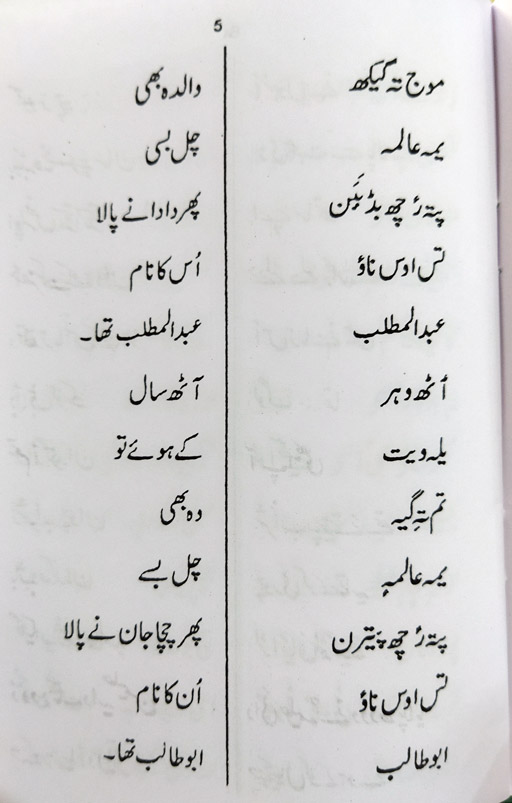 5
موج تہ گیکھ
یمہ عالمہ
پتہ رٔچھ بڈبَبَن
تس اوس ناؤ
عبدالمطلب
أٹھ وہر
یلہ ویت
تم تہِ گیہ
یمہ عالمہٕ
پتہ رٔچھ پیترن
تس اوس ناؤ
ابو طالب
والدہ بھی
چل بسی
پھر دادا نے پالا
اُس کا نام
عبدالمطلب تھا۔
آٹھ سال
کے ہوئے تو
وہ بھی
چل بسے
پھر چچا جان نے پالا
اُن کا نام
ابو طالب تھا۔